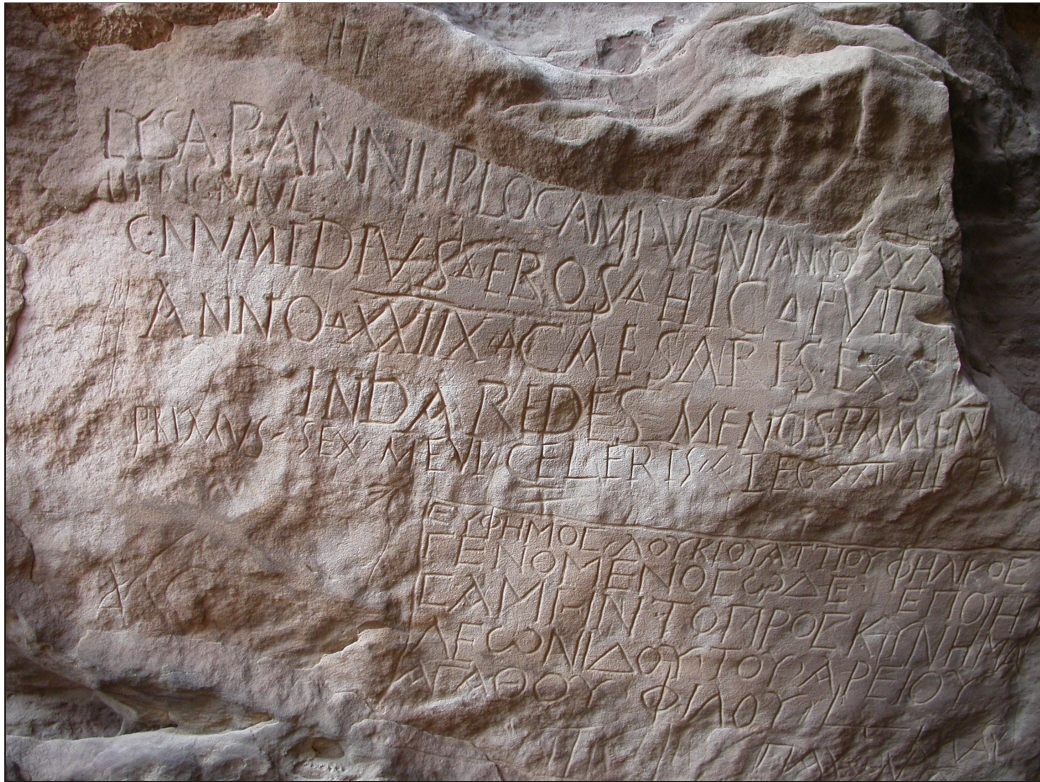 LYSA·P·ANNI·PLOCAMI·VENI·ANNO·XXX
III NON IVL
C·NVMIDIVS·EROS HIC FVIT
ANNO XXIIX CAESARIS·EXS
INDA REDIES MENSIS PAMEN
PRIMVS· SEX· MEVI CELERIS LEG XXII HIC FV
ΕΥΦΗΜΟC ΛΟΥΚΙΟΥ ΑΤΤΙΟΥ ΦΗΛΙΚΟC
ΓΕΝΟΜΕΝΟC ωΔΕ ΕΠΟΙΗ
CΑΜΗΝ ΤΟ ΠΡΟCΚΥΝΗΜΑ
ΛΕωΝΙΔΟΥ ΤΟΥ ΑΡΕΙΟΥ
ΑΓΑΘΟΥ ΦΙΛΟΥ